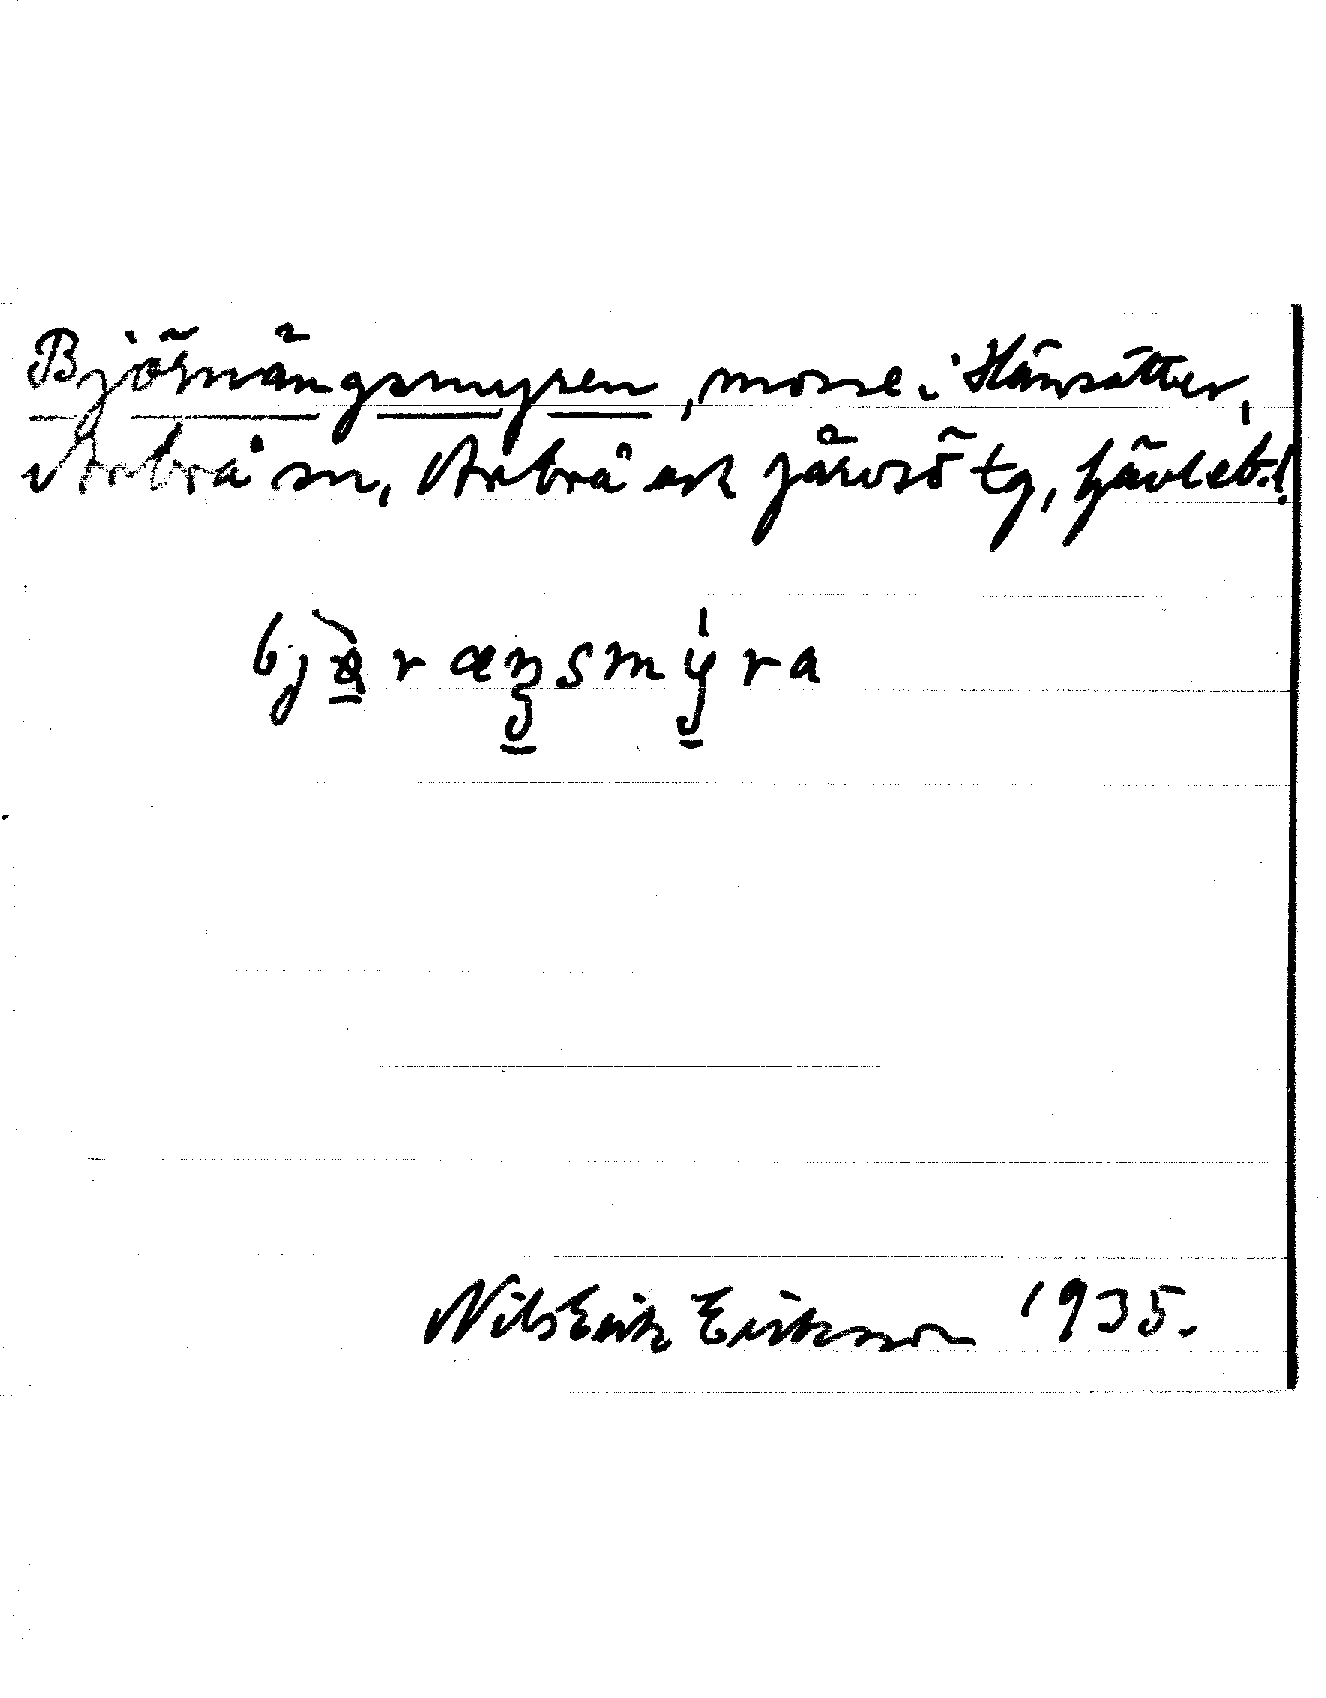 Björnängsmyren, mosse i Hänsätter,
Arbrå sn, Arbrå och Järvsö tg, Gävleb. l.
bjøræŋsmýra
Nils Erik Eriksson 1935.